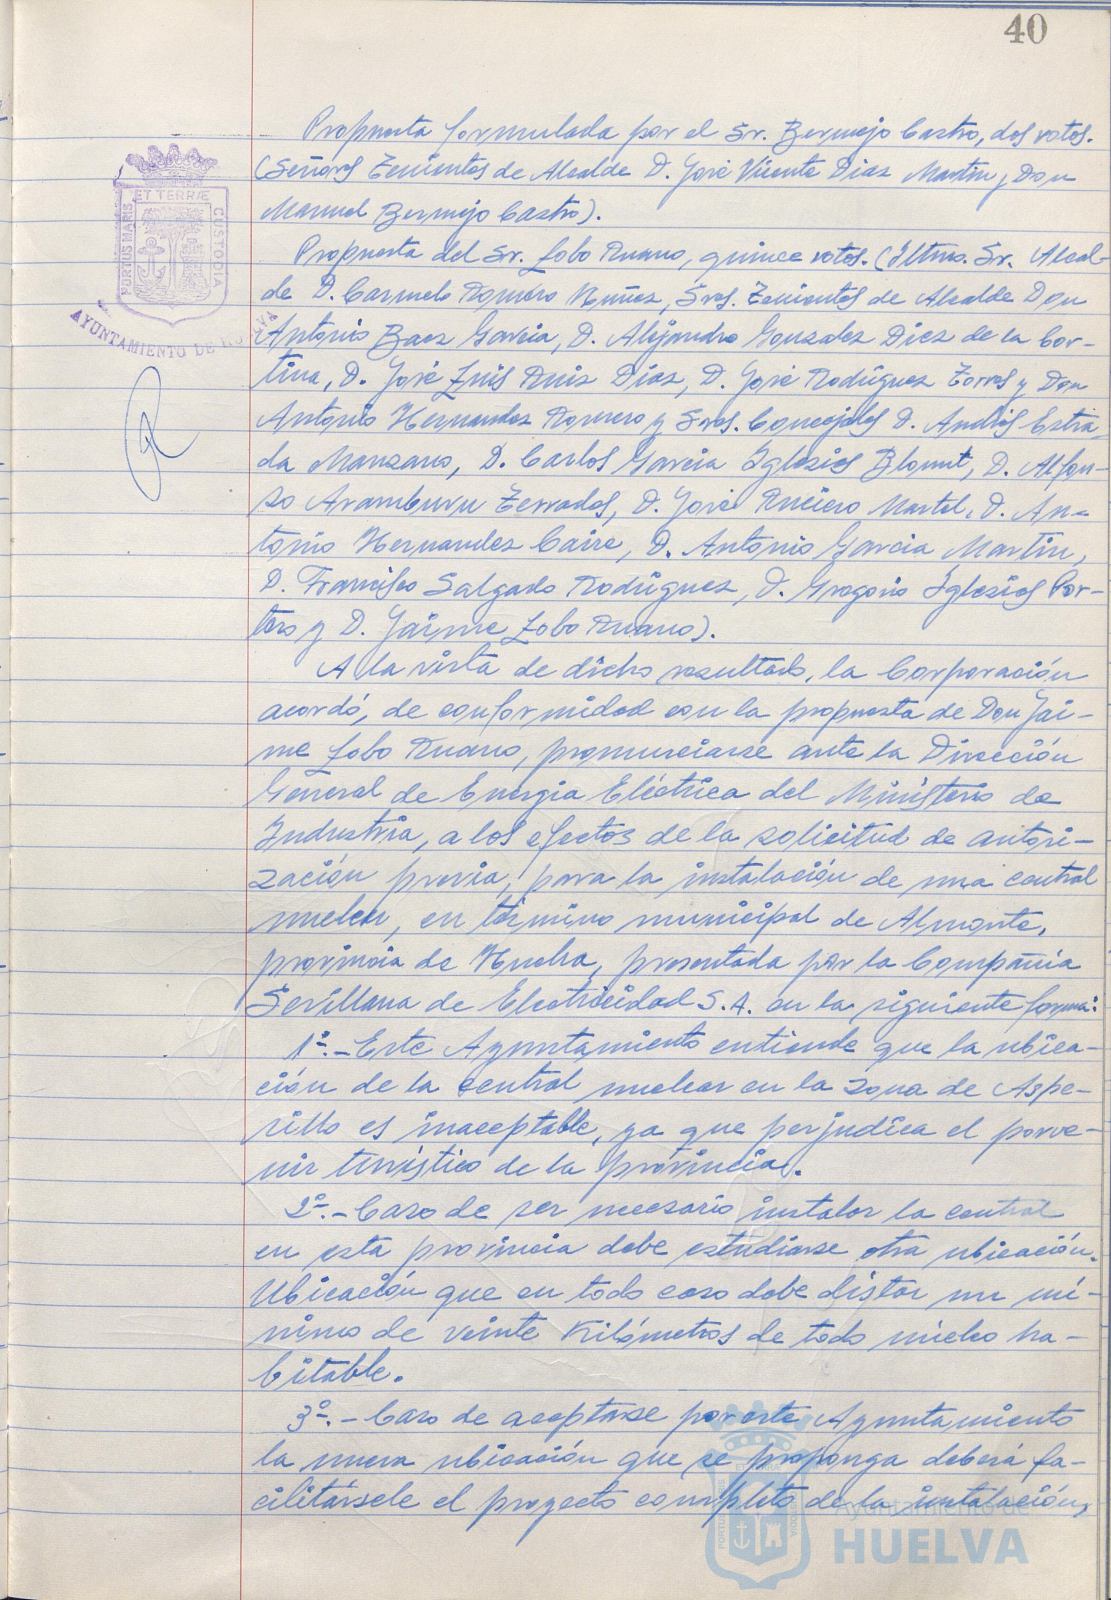 40
Propuesta formulada por el Sr. Bermejo Castro, dos votos.
(Señores Tenientes de Alcalde D. José Vicente Diaz Martin y Don
Manuel Bermejo Castro).
Propuesta del Sr. Lobo Ruano, quince votos. (Iltmo. Sr. Alcal-
de D. Carmelo Romero Nuñez, Sres. Tenientes de Alcalde Don
Antonio Baez Garcia, D. Alejandro Gonzalez Diez de la Cor-
tina, D. José Luis Ruiz Diaz, D. José Rodriguez Torres y Don
Antonio Hernandez Romero y Sres. Concejales D. Andrés Estra-
da Manzano, D. Carlos Garcia Iglesias Blount, D. Alfon-
so Aramburu Terrades, D. José Martel, D. An-
tonio Hernandez Caire, D. Antonio Garcia Martin,
D. Francisco Salgado Rodriguez, D. Gregorio Iglesias Por-
tero y D. Jaime Lobo Ruano).
A la vista de dicho resultado, la Corporación
acordó, de conformidad con la propuesta de Don Jai-
me Lobo Ruano, pronunciarse ante la Dirección
General de Energia Eléctrica del Ministerio de
Industria, a los efectos de la solicitud de autori-
zación previa, para la instalación de una central
nuclear, en término municipal de Almonte,
provincia de Huelva, presentada por la Compañia
Sevillana de Electricidad S.A. en la siguiente forma:
1º.- Este Ayuntamiento entiende que la ubica-
ción de la central nuclear en la zona de Aspe-
rillo es inaceptable, ya que perjudica el porve-
nir turistico de la provincia.
2º.- Caso de ser necesario instalar la central
en esta provincia debe estudiarse otra ubicación.
Ubicación que en todo caso debe distar un mí-
nimo de veinte Kilómetros de todo núcleo ha-
bitable.
3º.- Caso de aceptarse por este Ayuntamiento
la nueva ubicación que se proponga deberá fa-
cilitársele el proyecto completo de la instalación,
PORTUS MARIS ET TERRÆ CUSTODIA
AYUNTAMIENTO DE HUELVA
Ayuntamiento de
HUELVA